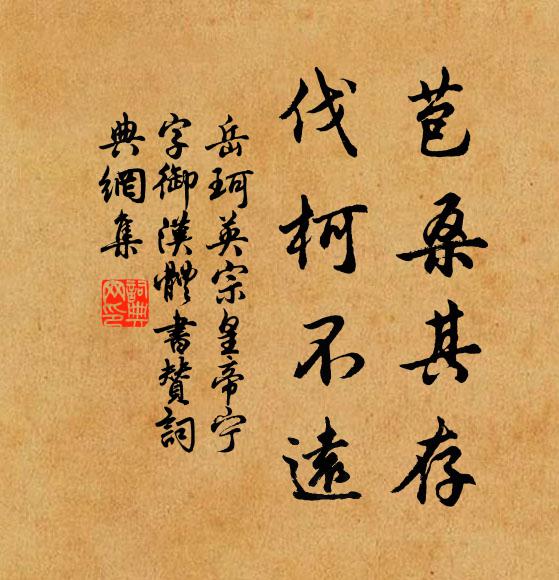 苞桑其存
伐柯不遠
岳珂英宗皇帝宁
字御漢體書赞詞
典網集
詞典
网印